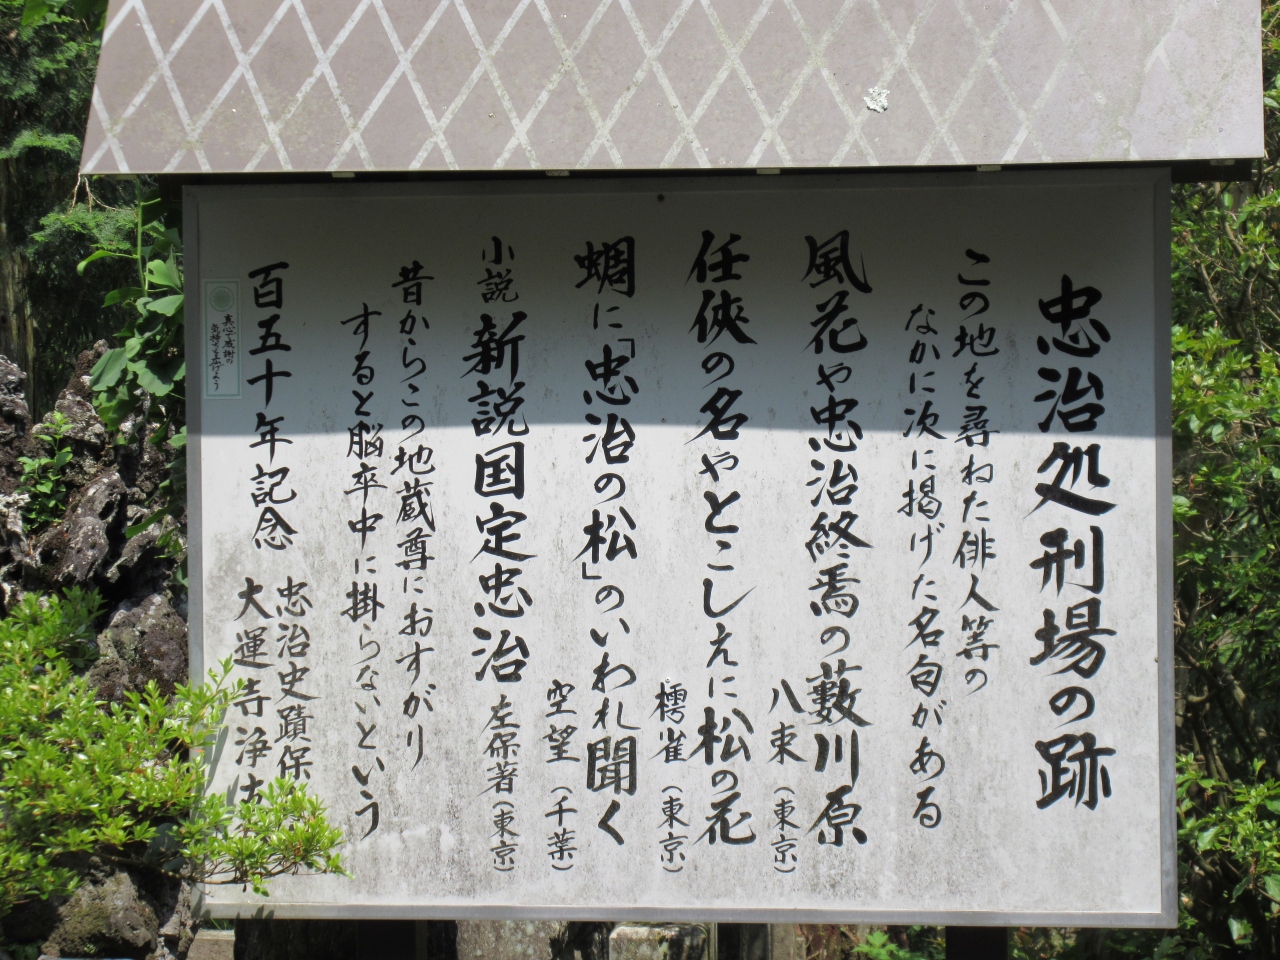 忠治処刑場の跡
この地を尋ねた俳人等の
なかに次に掲げた名句がある
風花や忠治終焉の藪川原
八束（東京）
任侠の名やとこしえに松の花
樗雀（東京）
蜩に「忠治の松」のいわれ聞く
空望（千葉）
小説 新説国定忠治 左保著（東京）
昔からこの地蔵尊におすがり
すると脳卒中に掛らないという
百五十年記念
忠治史蹟保
大運寺浄
真心と感謝の
気持ちを広げよう